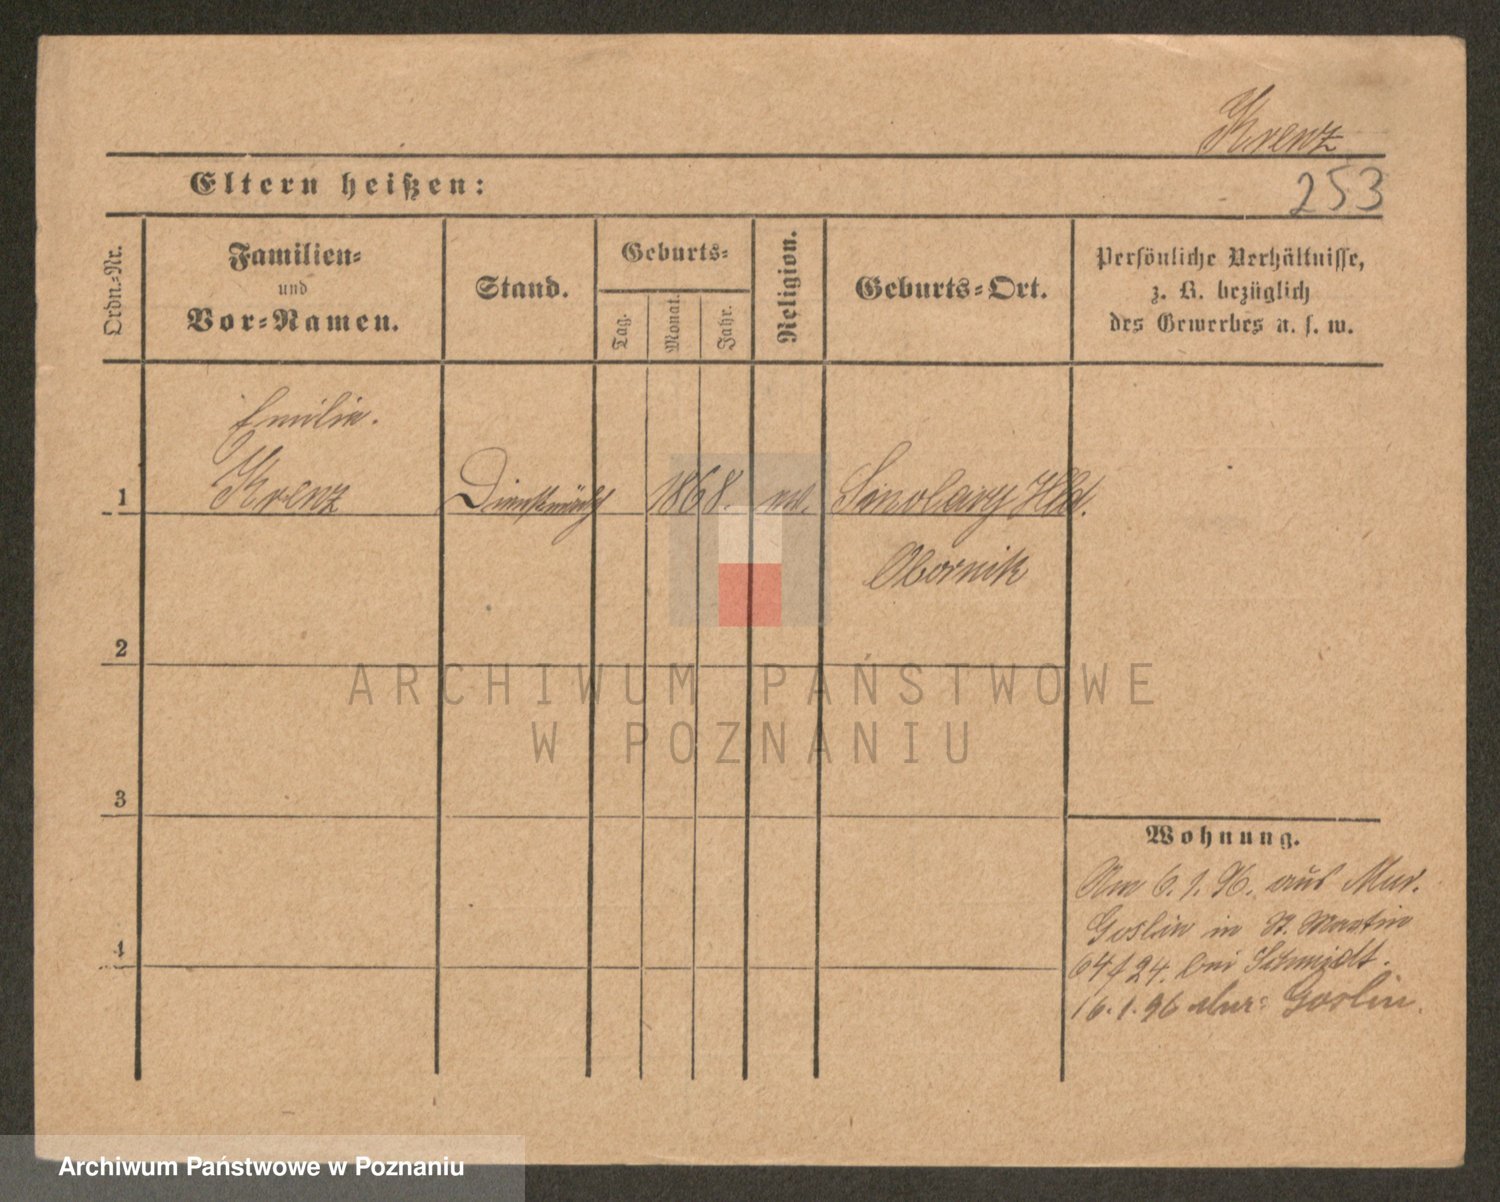 Krenz
Eltern heißen:
253
Ordn.-Nr.
Familien-
und
Vor-Namen.
Stand.
Geburts-
Tag.
Monat.
Jahr.
Religion.
Geburts-Ort.
Persönliche Verhältnisse,
z. B. bezüglich
des Gewerbes u. s. w.
Emilie.
1
Krenz
1868.
Hld.
Obornik
2
ARCHIWUM PAŃSTWOWE
W POZNANIU
3
Wohnung.
Am 6.1.96. aus Mur.
Goslin in St. Martin
4
64/24. bei Schmidt.
16.1.96 Mur: Goslin.
Archiwum Państwowe w Poznaniu